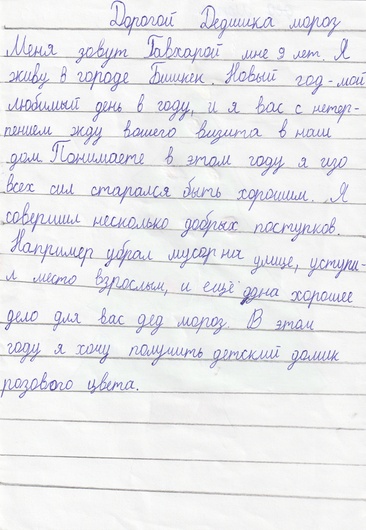 Дорогой Дедишка мороз
Меня зовут Гавхарой мне 9 лет. Я
живу в городе Бишкек. Новый год-мой
любимый день в году, и я вас с нетер-
пением жду вашего визита в наш
дом Понимаете в этом году я изо
всех сил старался быть хорошим. Я
совершил несколько добрых поступков.
Например убрал мусор на улице, уступи-
л место взрослым, и ещё одна хорошее
дело для вас дед мороз. В этом
году я хочу получить детский домик
розового цвета.